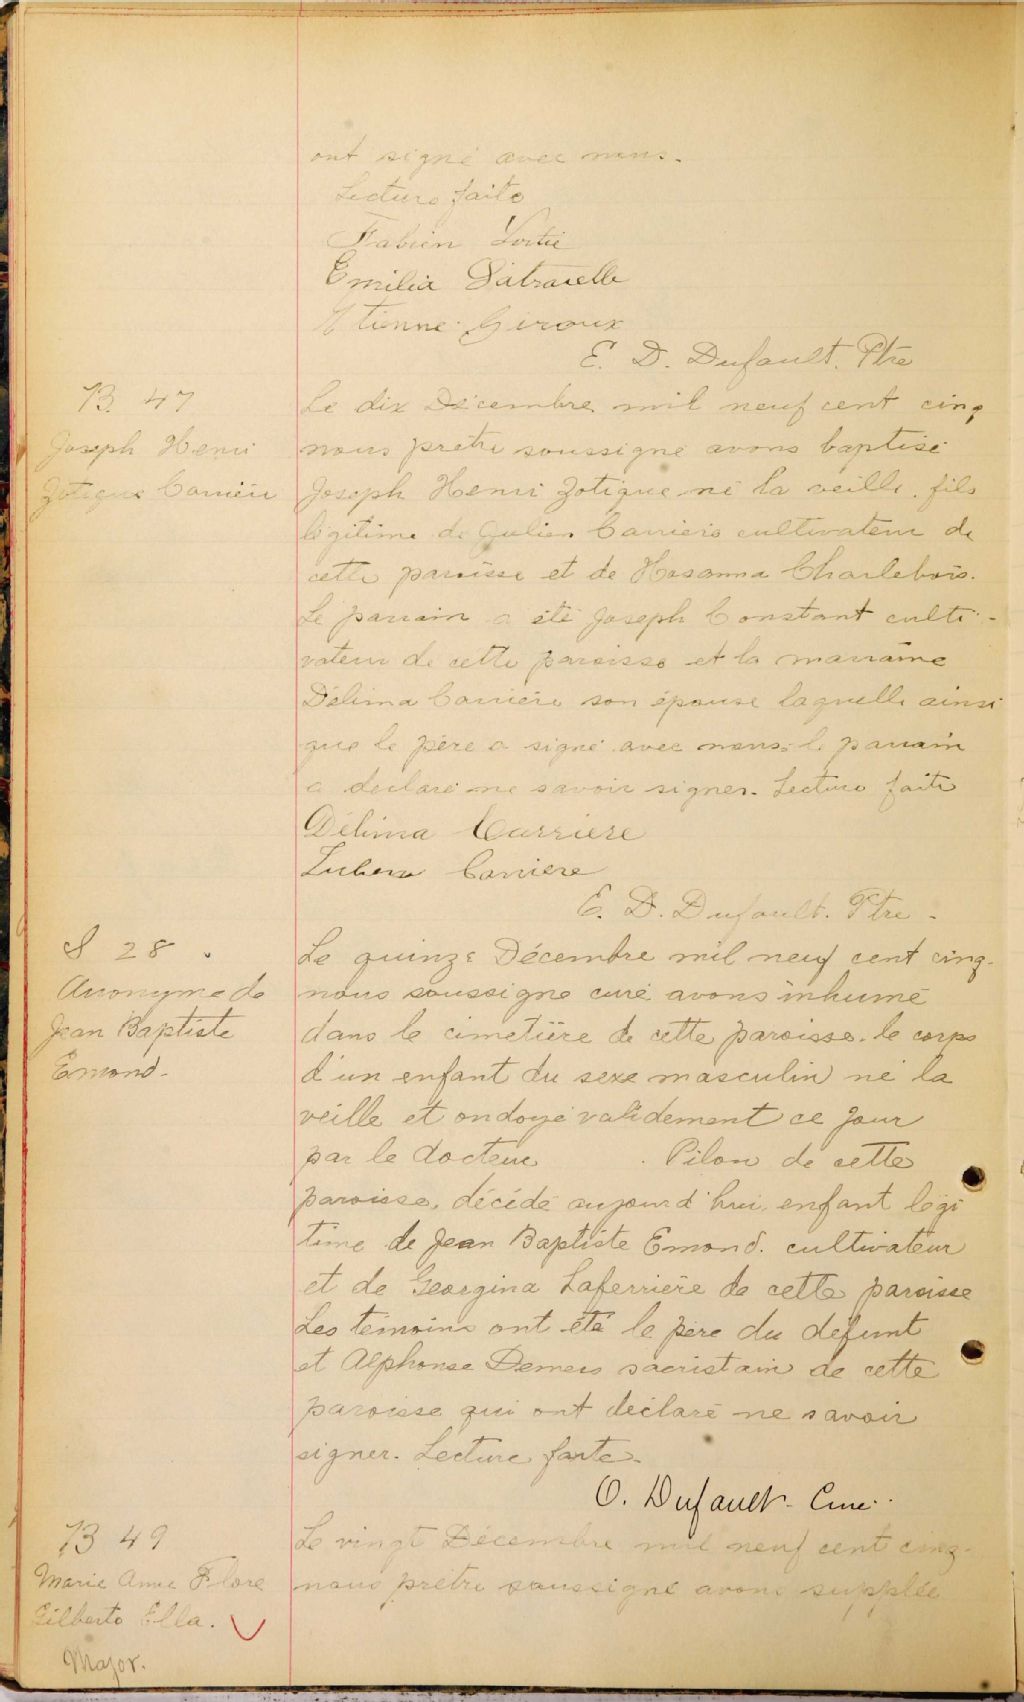 ont signé avec nous.
Lecture faite
Fabien Lortie
Emilia Latraielle
Etienne Giroux
E. D. Dufault. Ptre
B. 47
Joseph Henri
Zotique Carrière
Le dix Décembre mil neuf cent cinq
nous prêtre soussigné avons baptisé
Joseph Henri Zotique né la veille. fils
légitime de Julien Carriere cultivateur de
cette paroisse et de Hosanna Charlebois.
Le parrain a été Joseph Constant culti-
vateur de cette paroisse et la marraine
Délima Carrière son épouse laquelle ainsi
que le père a signé avec nous. le parrain
a declaré ne savoir signer. Lecture faite
Délima Carriere
Carriere
E. D. Dufault. Ptre.
S 28
Anonyme de
Jean Baptiste
Emond.
Le quinze Décembre mil neuf cent cinq.
nous soussigné curé avons inhumé
dans le cimetière de cette paroisse. le corps
d'un enfant du sexe masculin né la
veille et ondoyé validement ce jour
par le docteur Pilon de cette
paroisse, décédé aujourd'hui, enfant légi
time de Jean Baptiste Emond. cultivateur
et de Georgina Laferrière de cette paroisse
Les témoins ont été le père du défunt
et Alphonse Demers sacristain de cette
paroisse qui ont déclaré ne savoir
signer. Lecture faite.
O. Dufault. Curé.
B 49
Marie Anne Flore
Gilberte Ella.
Major.
Le vingt Décembre mil neuf cent cinq.
nous prêtre soussigné avons supplée